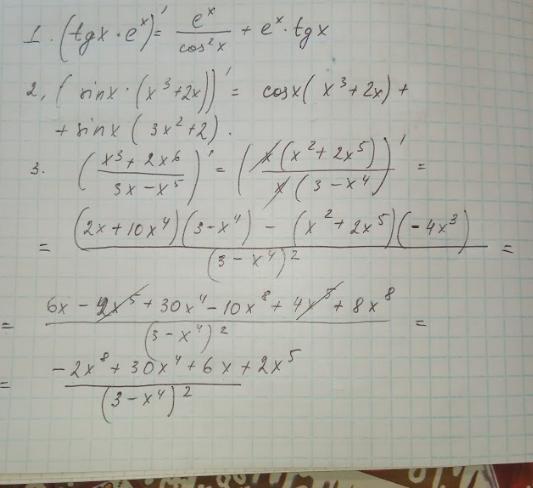 1. (tgx · eˣ)' = eˣ/cos²x + eˣ · tgx
2, (sinx · (x³+2x))' = cosx(x³+2x) +
+ sinx (3x²+2).
3. ((x³+2x⁶)/(3x−x⁵))' = (x(x²+2x⁵)/x(3−x⁴))' =
= ((2x+10x⁴)(3−x⁴) − (x²+2x⁵)(−4x³))/(3−x⁴)² =
= (6x − 2x⁵ + 30x⁴ − 10x⁸ + 4x⁵ + 8x⁸)/(3−x⁴)² =
= (−2x⁸ + 30x⁴ + 6x + 2x⁵)/(3−x⁴)²